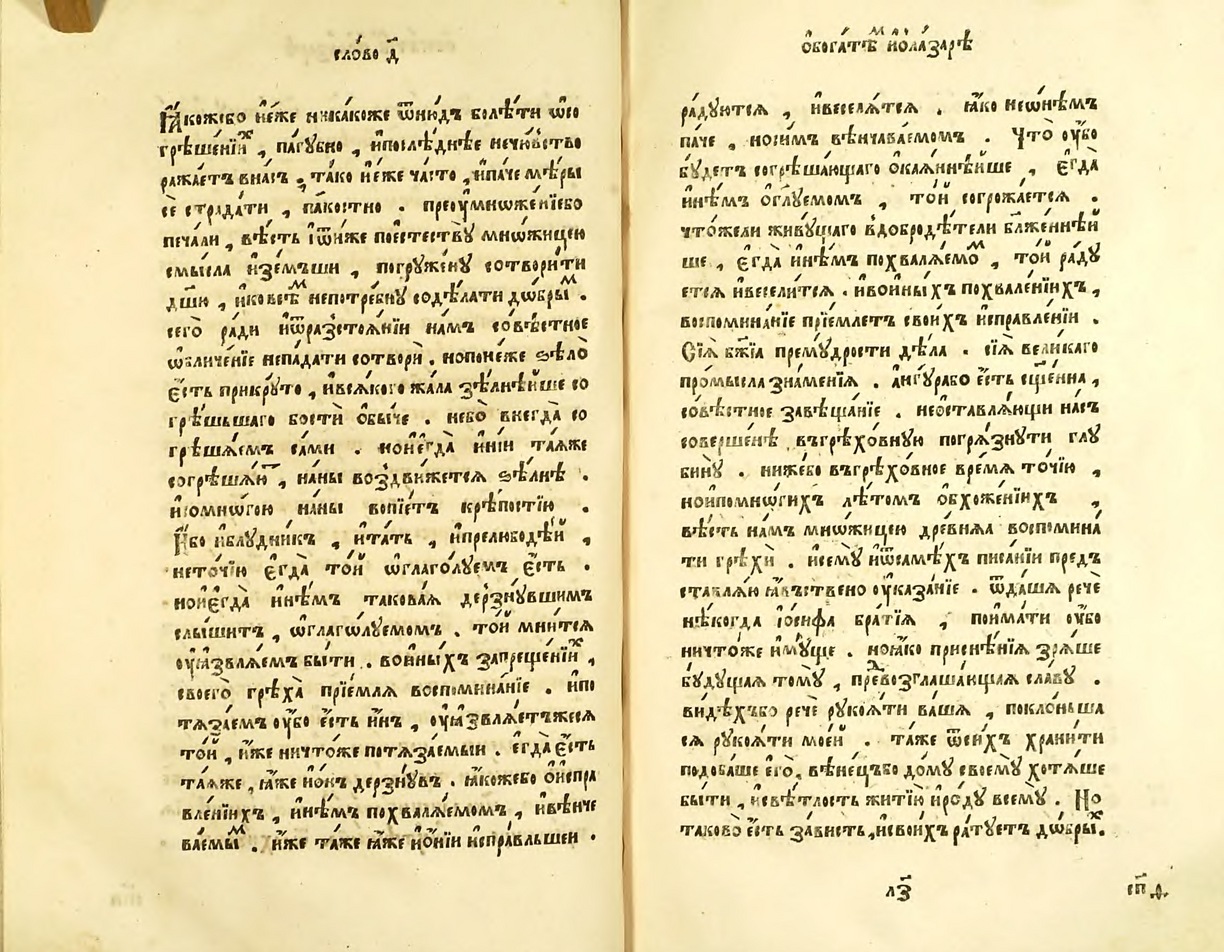 сло́во д҃
Ꙗ҆́кожебо и҆́еже никакоже ѿню́дъ болѣ́ти ѡ҆со
грѣше́нїи х , па́гꙋбно , и҆послѣ́днѣе нечю́вьство
ража́етъ внасъ , та́ко и҆́еже ча́сто , и҆па́че мѣ́ры
се́ страда́ти , па́костно . преоу҆множе́нїебо
печа́ли , вѣ́сть і҆ѿи́же поесте́ствꙋ мно́жицею
смы́сла и҆зе́мъши , погрꙋже́нꙋ сотвори́ти
дш҃ю , и҆ковсѣ м непотре́бнꙋ содѣ́лати дѡ́бры м .
сего̀ ра́ди и҆ѿразстоѧ́нїи на́мъ со́вѣстное
ѡ҆бличе́нїе непа́дати сотворѝ . нопоне́же ѕѣло̀
є҆́сть прикрꙋ́то , и҆всѧ́кого жа́ла зѣлнѣ́йше со
грѣ́шьшаго бостѝ ѡ҆бы́че . небо̀ внегда̀ со
грѣша́емъ са́ми . нои҆є҆гда̀ и҆ні́и та́ѧже
согрѣша́ю т , на́ны воздви́жетсѧ ѕѣ́лнѣ .
и҆сомно́гою на́ны вопїе́тъ крѣ́постїю .
И҆́бо и҆блꙋдни́къ , и҆та́ть , и҆прелюбодѣ́й ,
нето́чїю є҆гда̀ то́й ѡ҆глаго́лꙋемъ є҆́сть .
нои҆є҆гда̀ и҆нѣ́мъ такова́ѧ дерзнꙋ́вшимъ
слы́шитъ , ѡ҆глаго́лꙋемомъ . то́й мни́тсѧ
оу҆ꙗ҆звлѧ́емъ бы́ти . во и҆ны́хъ запреще́нїи х ,
своего̀ грѣха̀ прїе́млѧ воспомина́нїе . и҆по
тѧза́емъ оу҆́бо є҆́сть и҆́нъ , оу҆ꙗ҆звлѧ́етъжесѧ
то́й , и҆́же ничто́же потѧза́емыи . є҆гда̀ є҆́сть
та́ѧже , ꙗ҆́же и҆ о҆́нъ дерзнꙋ́въ . ꙗ҆́кожебо ѡ҆и҆спра
вле́нїихъ , и҆нѣ́мъ похвалѧ́емомъ , и҆вѣнче
ва́емы м . и҆́же та́же ꙗ҆́же и҆ѻ҆ні́и и҆спра́вльшеи .
ѡ҆бога́тѣ м и҆ѡ҆ла́зарѣ
ра́дꙋютсѧ , и҆веселѧ́тсѧ . ꙗ҆́ко неѡ҆нѣ́мъ
па́че , носи́мъ вѣнчава́емомъ . Что̀ оу҆́бо
бꙋ́детъ согрѣша́ющаго ѻ҆каѧ́ннѣйше , є҆гда̀
и҆нѣ́мъ ѻ҆глꙋ́емомъ , то́й согрожа́етсѧ .
что́жели живꙋ́щаго вдобродѣ́тели бл҃же́ннѣй
ше , є҆гда̀ и҆нѣ́мъ похвалѧ́емо м , то́й ра́дꙋ
етсѧ и҆весели́тсѧ . и҆во и҆ны́хъ похвале́нїихъ ,
воспомина́нїе прїе́млетъ свои́хъ и҆справле́нїи .
Сїѧ̀ бж҃їа премꙋ́дрости дѣ́ла . сїѧ̀ вели́каго
про́мысла зна́менїѧ . а҆́нгꙋрабо є҆́сть сщ҃е́нна ,
со́вѣстное завѣща́нїе . неѡ҆ставлѧ́ющи на́съ
соверше́нѣ въгрѣхо́вную погрѧ́знꙋти глꙋ
бинꙋ̀ . ниже́бо въгрѣхо́вное вре́мѧ то́чїю ,
нои҆помно́гихъ лѣ́томъ ѡ҆бхоже́нїихъ ,
вѣ́сть на́мъ мно́жицею дре́внѧѧ воспомина́
ти грѣхѝ . и҆семꙋ̀ и҆ѿсамѣ́хъ писа́нїи пред
ста́влю ꙗ҆́въствено оу҆каза́нїе . ѿда́шѧ речѐ
нѣ́когда і҆ѡ́сифа бра́тїѧ , пои҆ма́ти оу҆́бо
ничто́же и҆мꙋ́ще . ноꙗ҆́ко присне́нїѧ зрѧ́ше
бꙋ́дꙋщаѧ томꙋ̀ , пре д возглаша́ющаѧ сла́вꙋ .
ви́дѣхъбо речѐ рꙋкоѧ́ти ва́шѧ , поклоньша
сѧ рꙋкоѧ́ти мое́й . та́же ѿси́хъ храни́ти
подоба́ше є҆го̀, вѣне́цъбо до́мꙋ своемꙋ̀ хотѧ́ше
бы́ти , и҆свѣ́тлость житїю̀ и҆ро́дꙋ всемꙋ̀ . Но
таково̀ є҆́сть за́висть , и҆свои́хъ ра́тꙋетъ дѡ́бры х .
лз҃
сп҃ д.